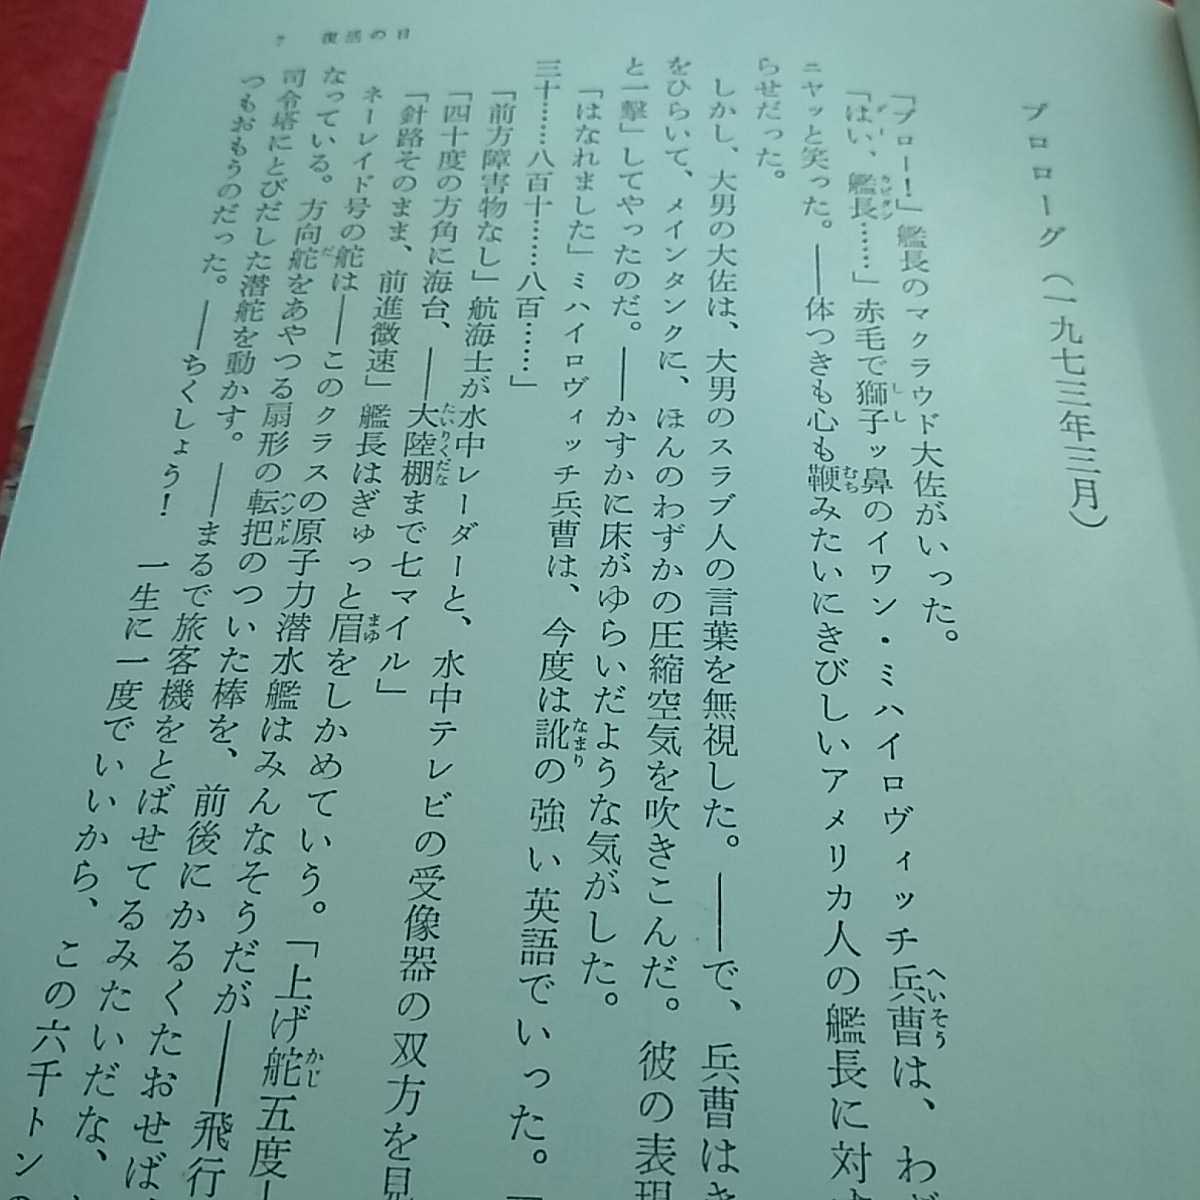 7 復活の日
プロローグ(一九七三年三月)
「ブロー!」艦長のマクラウド大佐がいった。
「はい、艦長……」赤毛で獅子ッ鼻のイワン・ミハイロヴィッチ兵曹は、わざ
ニヤッと笑った。――体つきも心も鞭みたいにきびしいアメリカ人の艦長に対す
らせだった。
しかし、大男の大佐は、大男のスラブ人の言葉を無視した。――で、兵曹はき
をひらいて、メインタンクに、ほんのわずかの圧縮空気を吹きこんだ。彼の表現
と一撃」してやったのだ。――かすかに床がゆらいだような気がした。
「はなれました」ミハイロヴィッチ兵曹は、今度は訛の強い英語でいった。
三十……八百十……八百……」
「前方障害物なし」航海士が水中レーダーと、水中テレビの受像器の双方を見
「四十度の方角に海台、――大陸棚まで七マイル」
「針路そのまま、前進微速」艦長はぎゅっと眉をしかめていう。「上げ舵五度―
ネーレイド号の舵は――このクラスの原子力潜水艦はみんなそうだが――飛行
なっている。方向舵をあやつる扇形の転把のついた棒を、前後にかるくたおせば
司令塔にとびだした潜舵を動かす。――まるで旅客機をとばせてるみたいだな、
つもおもうのだった。――ちくしょう! 一生に一度でいいから、この六千トンの